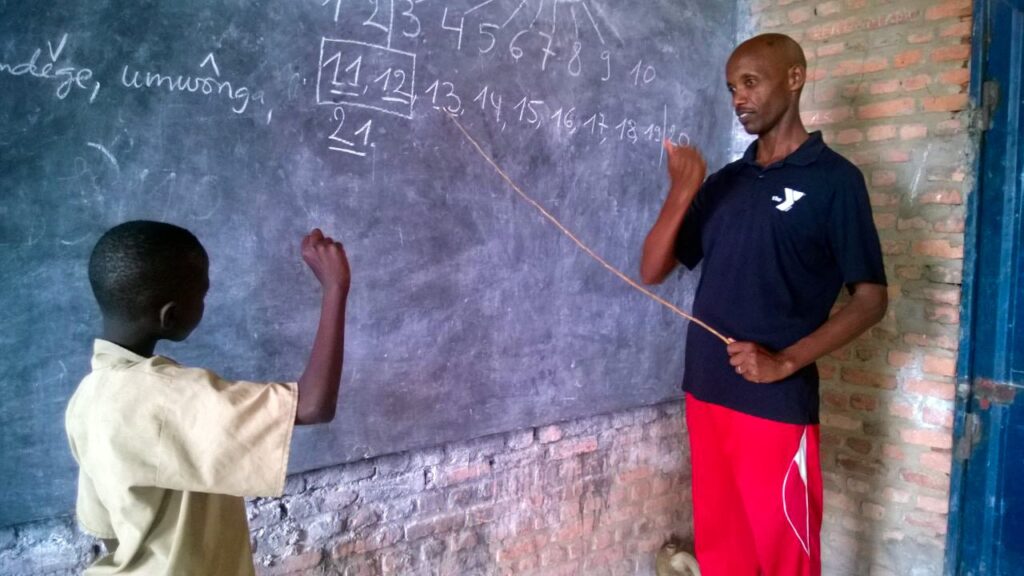 1 2 3 4 5 6 7 8 9 10
nděge, umwônga,
11, 12, 13, 14, 15, 16, 17, 18, 19, 20
21.
the Y